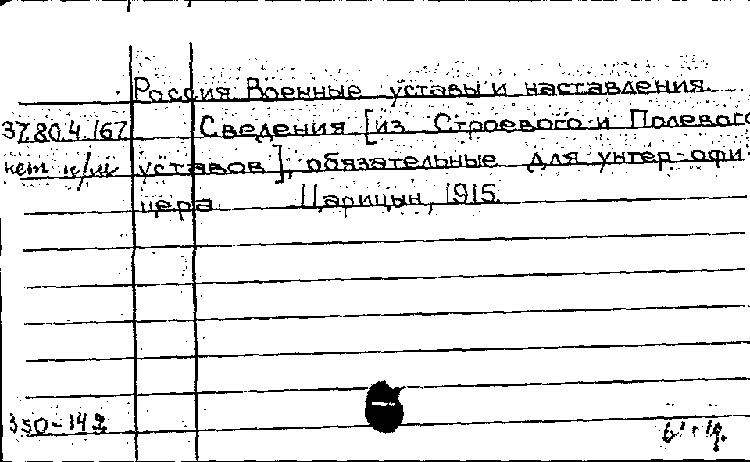 Россия. Военные уставы и наставления.
37.80.4.167 Сведения [из Строевого и Полевого
нет уставов], обязательные для унтер-офи-
цера. Царицын, 1915.
350-14